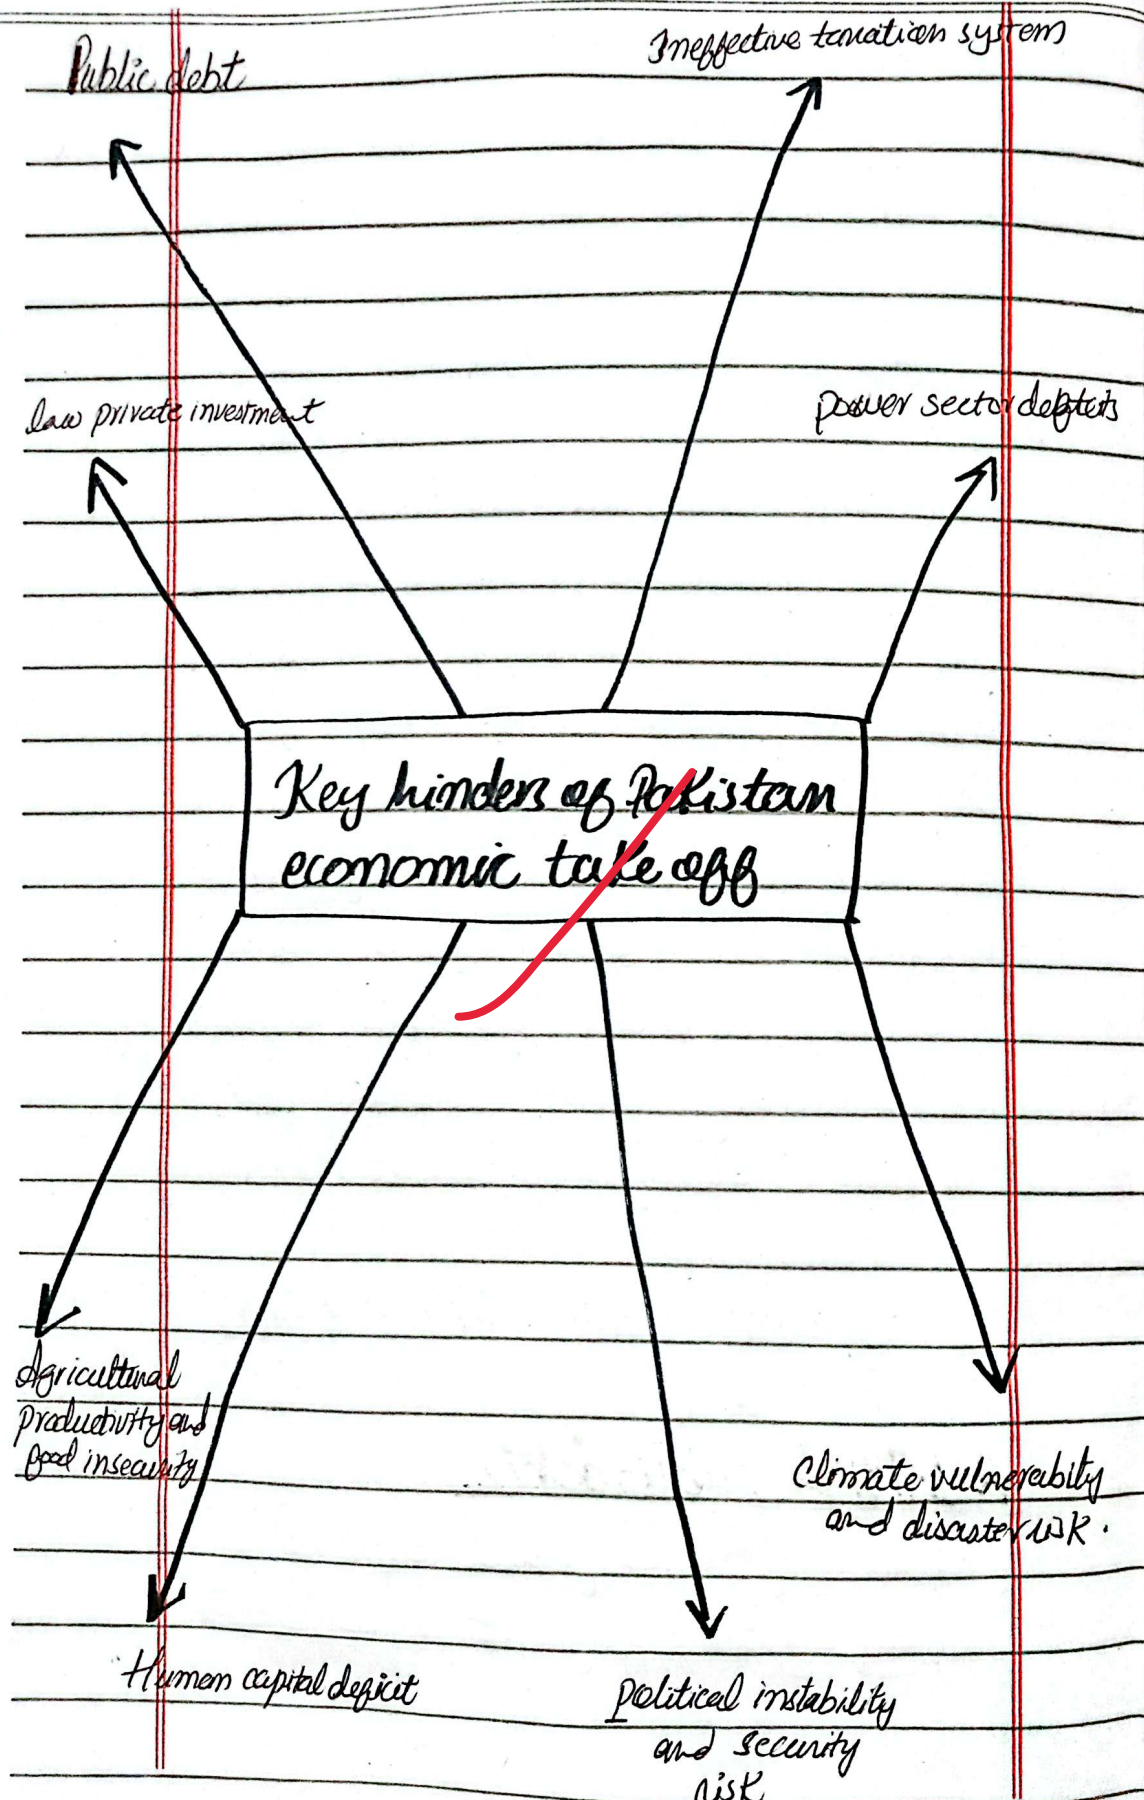 Public debt
Ineffective taxation system
low private investment
power sector debts
Key hinders of Pakistan
economic take off
Agricultural
productivity and
food insecurity
Climate vulnerability
and disaster risk.
Human capital deficit
Political instability
and security
risk